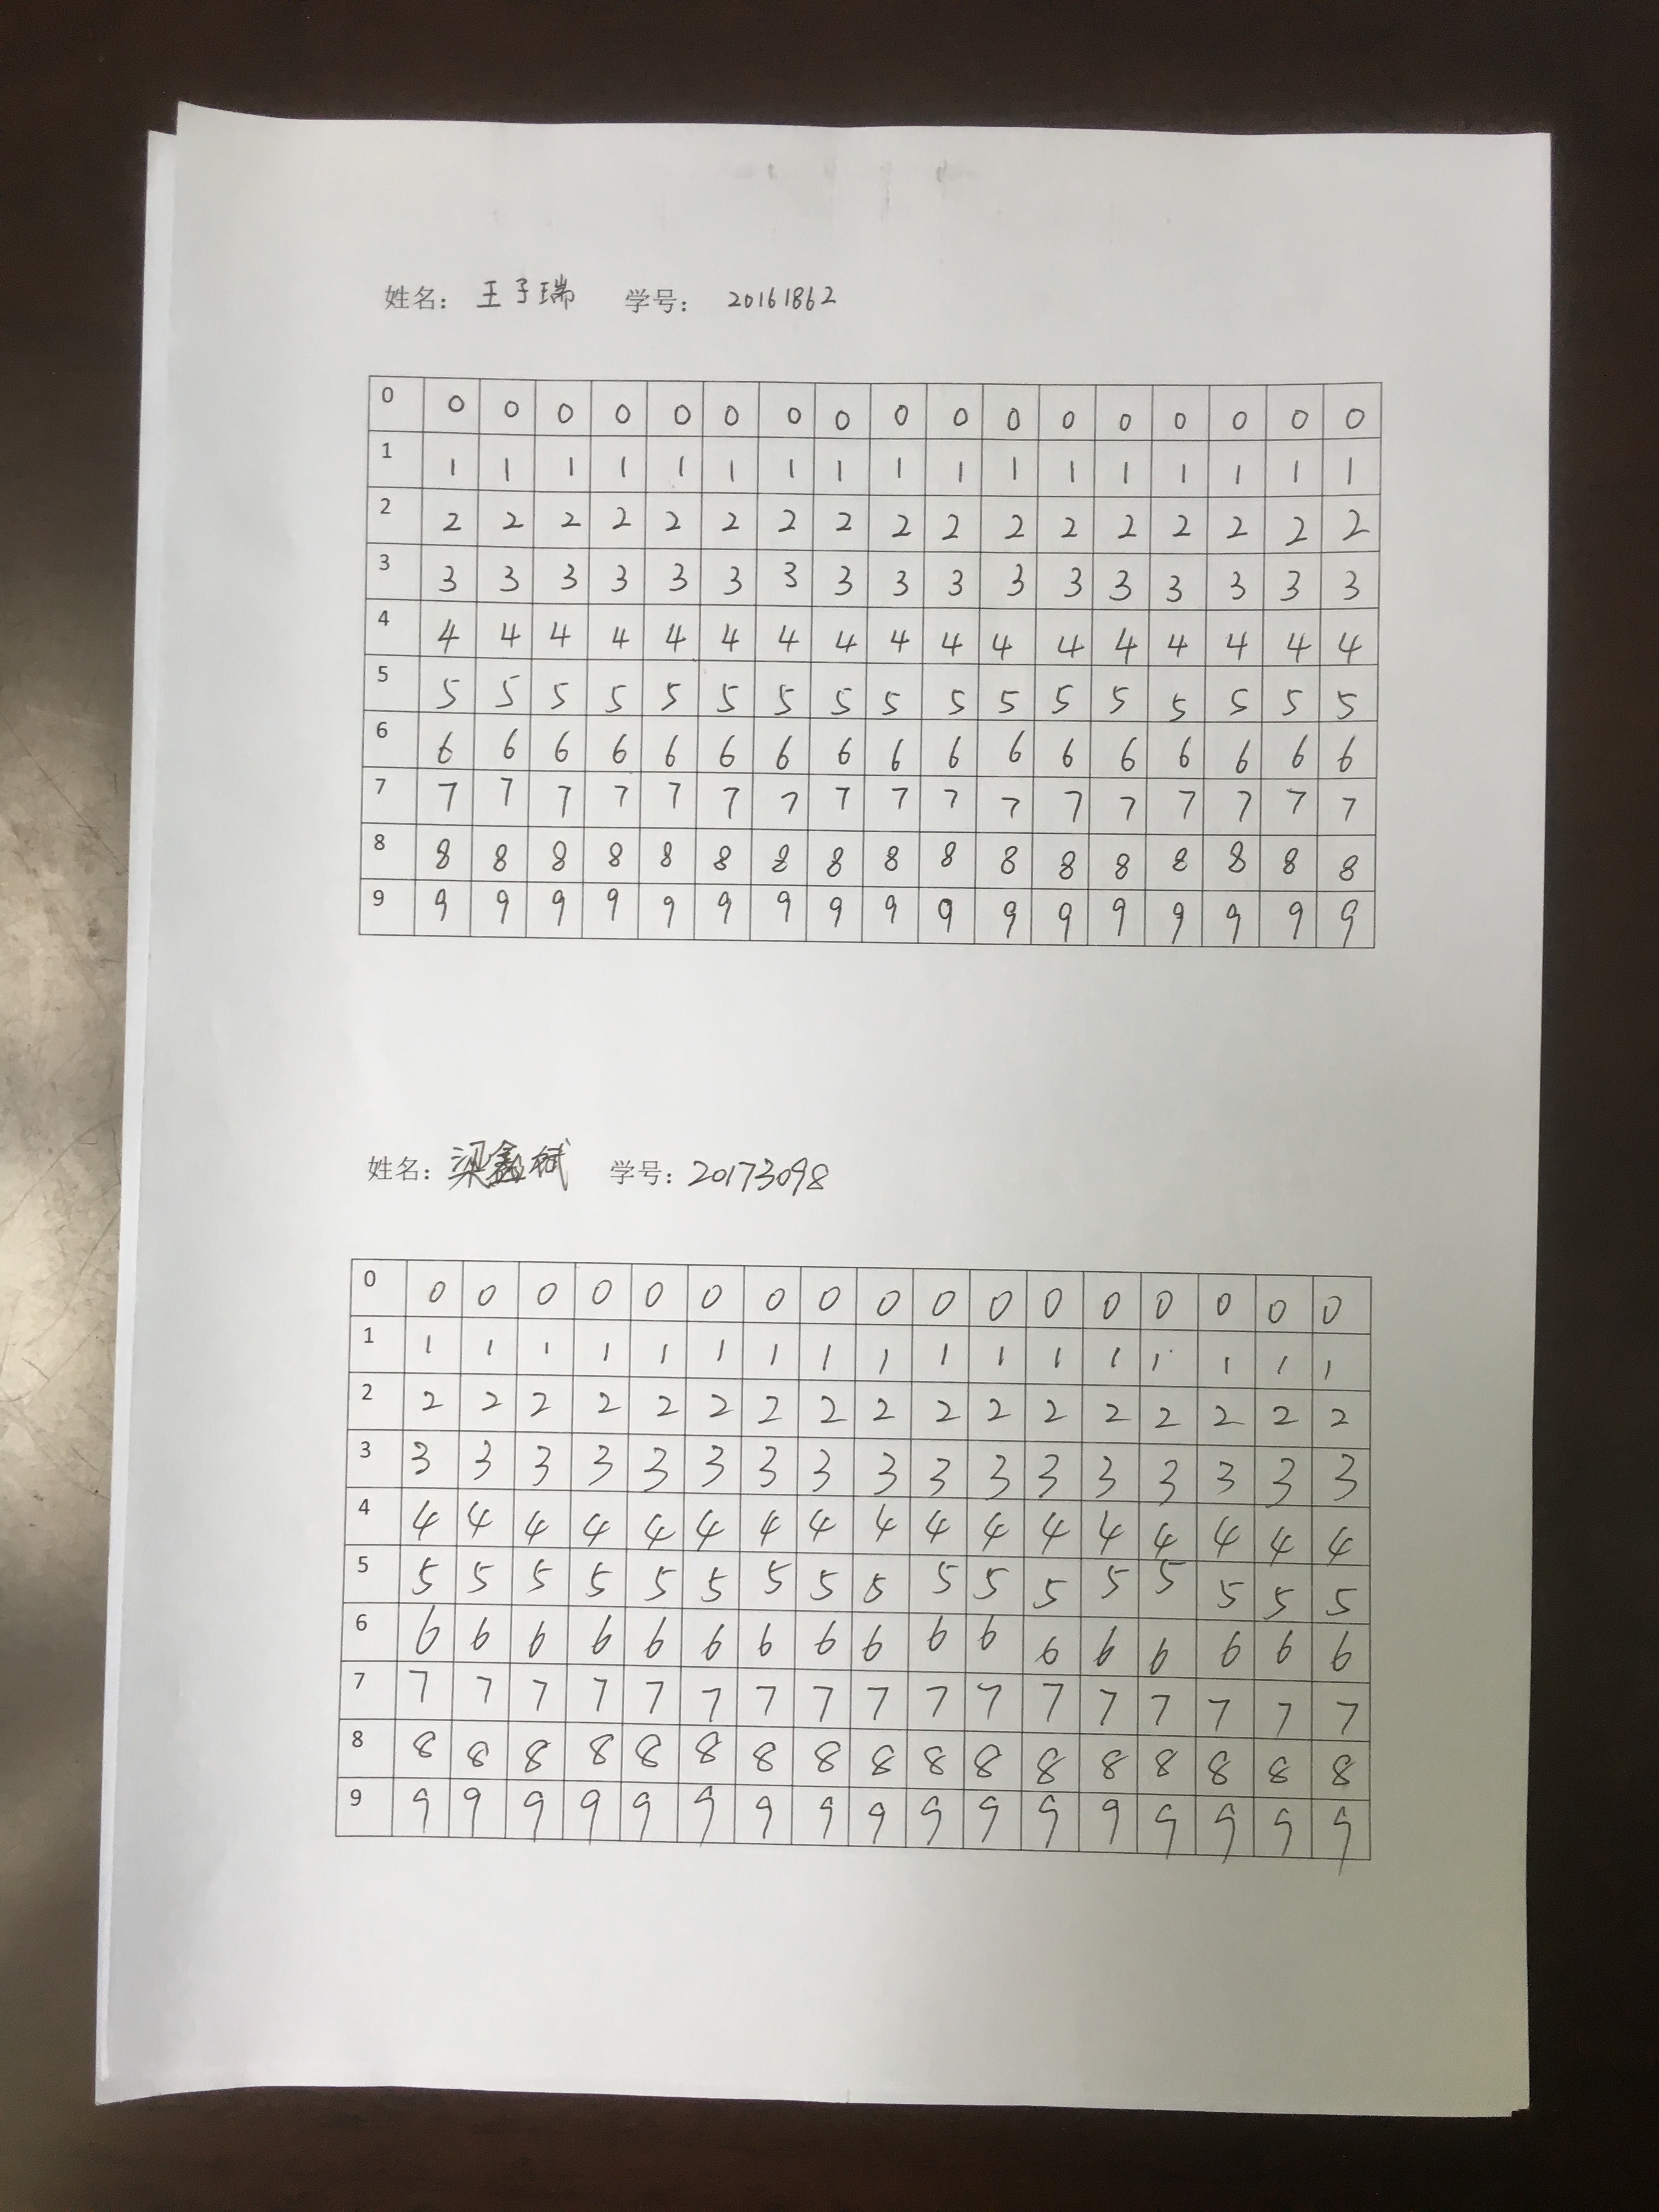 姓名： 王子瑞 学号： 20161862
0 0 0 0 0 0 0 0 0 0 0 0 0 0 0 0 0 0
1 1 1 1 1 1 1 1 1 1 1 1 1 1 1 1 1 1
2 2 2 2 2 2 2 2 2 2 2 2 2 2 2 2 2 2
3 3 3 3 3 3 3 3 3 3 3 3 3 3 3 3 3 3
4 4 4 4 4 4 4 4 4 4 4 4 4 4 4 4 4 4
5 5 5 5 5 5 5 5 5 5 5 5 5 5 5 5 5 5
6 6 6 6 6 6 6 6 6 6 6 6 6 6 6 6 6 6
7 7 7 7 7 7 7 7 7 7 7 7 7 7 7 7 7 7
8 8 8 8 8 8 8 8 8 8 8 8 8 8 8 8 8 8
9 9 9 9 9 9 9 9 9 9 9 9 9 9 9 9 9 9
姓名： 梁鑫斌 学号： 20173098
0 0 0 0 0 0 0 0 0 0 0 0 0 0 0 0 0 0
1 1 1 1 1 1 1 1 1 1 1 1 1 1 1 1 1 1
2 2 2 2 2 2 2 2 2 2 2 2 2 2 2 2 2 2
3 3 3 3 3 3 3 3 3 3 3 3 3 3 3 3 3 3
4 4 4 4 4 4 4 4 4 4 4 4 4 4 4 4 4 4
5 5 5 5 5 5 5 5 5 5 5 5 5 5 5 5 5 5
6 6 6 6 6 6 6 6 6 6 6 6 6 6 6 6 6 6
7 7 7 7 7 7 7 7 7 7 7 7 7 7 7 7 7 7
8 8 8 8 8 8 8 8 8 8 8 8 8 8 8 8 8 8
9 9 9 9 9 9 9 9 9 9 9 9 9 9 9 9 9 9